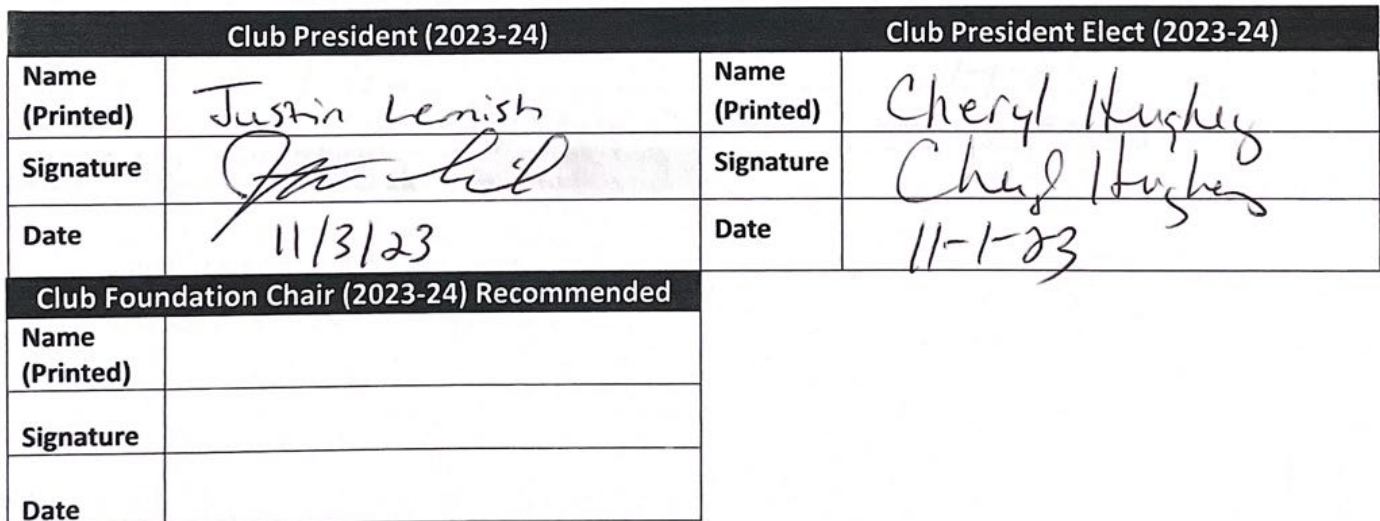 Club President (2023-24)
Name (Printed) Justin Lemish
Signature
Date 11/3/23
Club President Elect (2023-24)
Name (Printed) Cheryl Hughey
Signature Cheryl Hughey
Date 11-1-23
Club Foundation Chair (2023-24) Recommended
Name (Printed)
Signature
Date